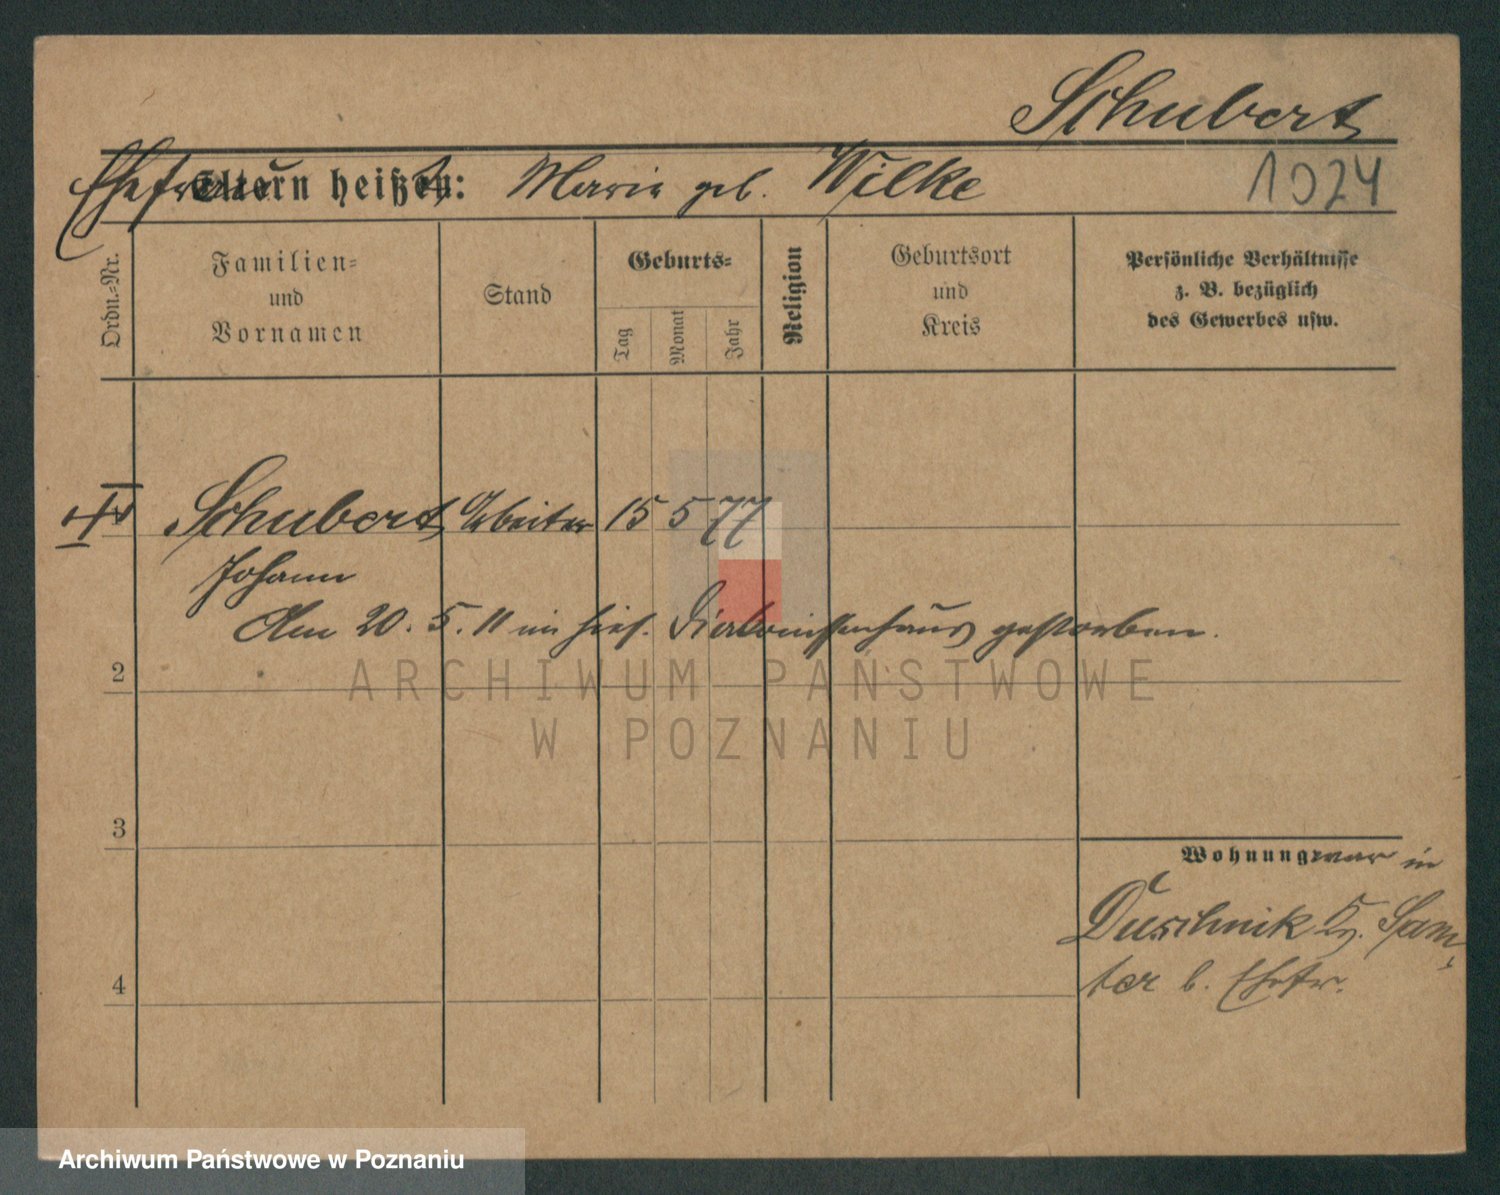 Schubert
Ehefrau Eltern heißt: Maria geb. Wilke
1024
Ordn.=Nr.
Familien=
und
Vornamen
Stand
Geburts=
Tag
Monat
Jahr
Religion
Geburtsort
und
Kreis
Persönliche Verhältnisse
z. B. bezüglich
des Gewerbes usw.
Schubert Arbeiter 15 5 77
Johann
Am 20. 5. 11 im hies. Diakonissenhaus gestorben.
2
ARCHIWUM PAŃSTWOWE
W POZNANIU
3
Wohnung war in
Duschnik Kr. Sam-
ter b. Ehefr.
4
Archiwum Państwowe w Poznaniu